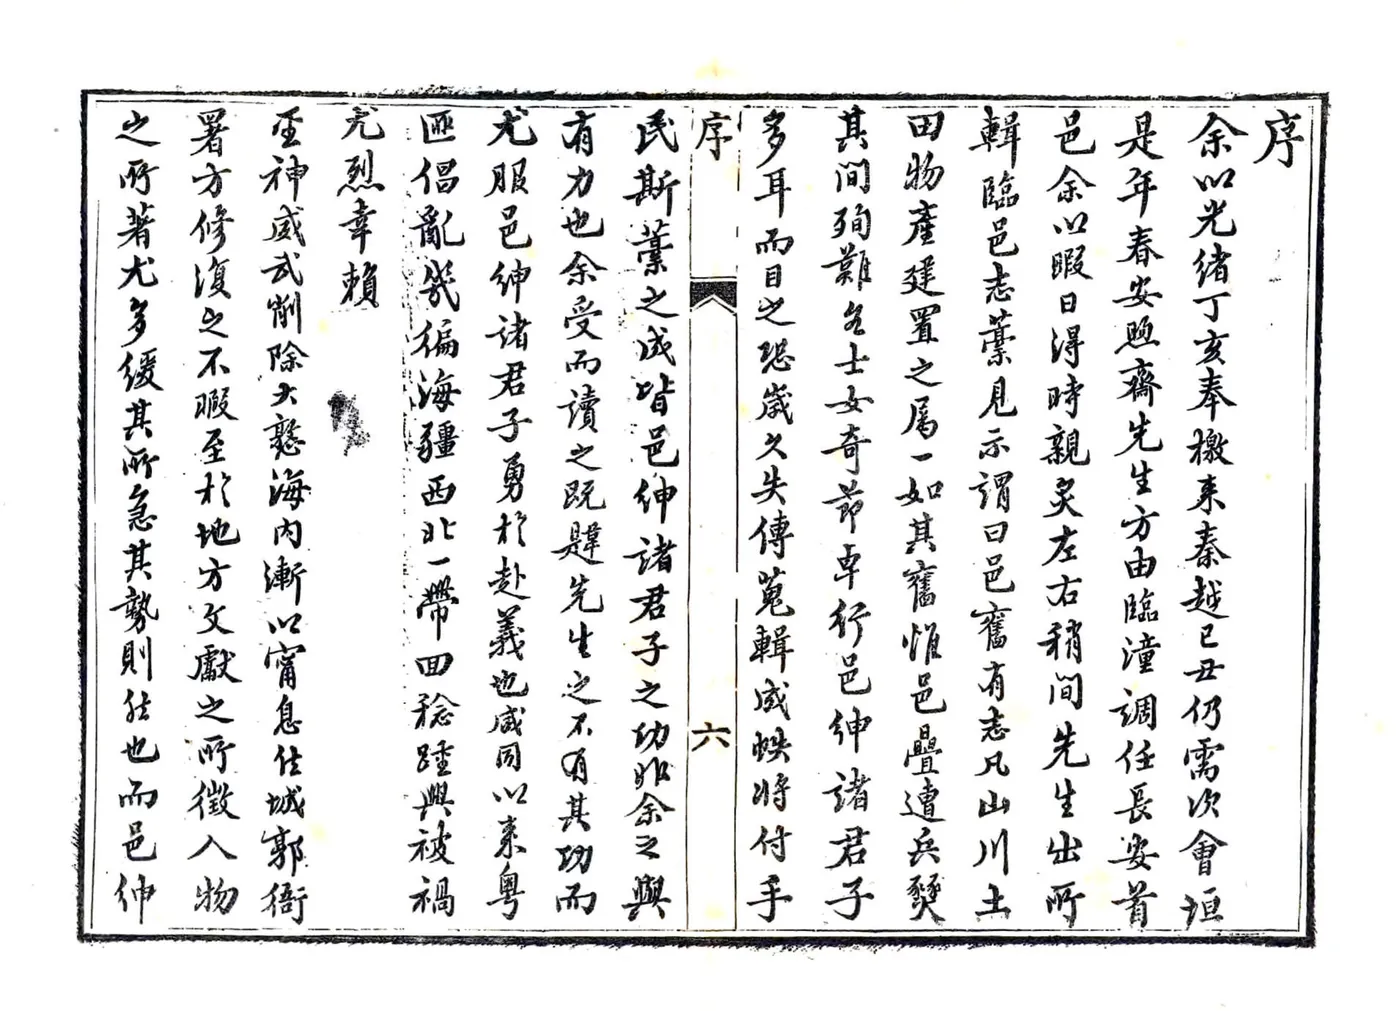 序
余以光緒丁亥奉檄来秦越己丑仍需次會垣
是年春安煦齋先生方由臨潼調任長安首
邑余以暇日得時親炙左右稍间先生出所
輯臨邑志藁見示謂曰邑舊有志凡山川土
田物產建置之属一如其舊惟邑疊遭兵燹
其间殉難各士女奇莭卓行邑紳諸君子
多耳而目之恐歲久失傳蒐輯成帙将付手
序
六
民斯藁之成皆邑紳諸君子之功非余之與
有力也余受而讀之既韙先生之不有其功而
尤服邑紳諸君子勇於赴義也咸同以来粤
匪倡亂幾徧海疆西北一帶回稔踵興被禍
尤烈幸賴
至神威武削除大憝海内漸以甯息住城郭衙
署方修復之不暇至於地方文獻之所徵人物
之所著尤多緩其所急其勢則然也而邑紳